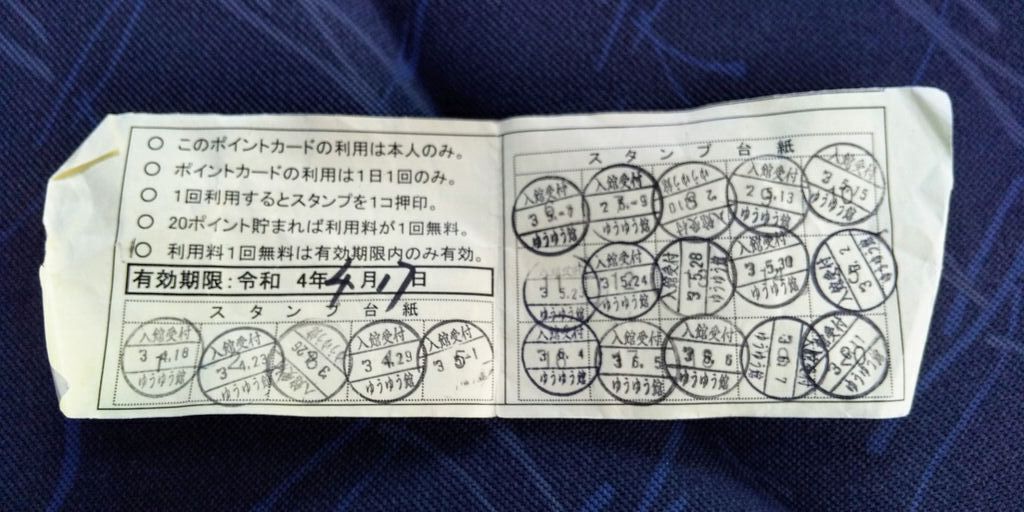 ○ このポイントカードの利用は本人のみ。
○ ポイントカードの利用は1日1回のみ。
○ 1回利用するとスタンプを1コ押印。
○ 20ポイント貯まれば利用料が1回無料。
○ 利用料1回無料は有効期限内のみ有効。
有効期限:令和 4年4月17日
スタンプ台紙
入館受付
3 4.18
ゆうゆう館
入館受付
3 4.23
ゆうゆう館
入館受付
3 4.29
ゆうゆう館
入館受付
3 5.-1
スタンプ台紙
入館受付
ゆうゆう館
入館受付
ゆうゆう館
入館受付
ゆうゆう館
入館受付
.13
ゆうゆう館
入館受付
ゆうゆう館
入館受付
3 5.24
ゆうゆう館
入館受付
3 5.28
ゆうゆう館
入館受付
3 5.30
ゆうゆう館
入館受付
入館受付
3 6.4
ゆうゆう館
入館受付
3 6.5
ゆうゆう館
入館受付
ゆうゆう館
ゆうゆう館
入館受付